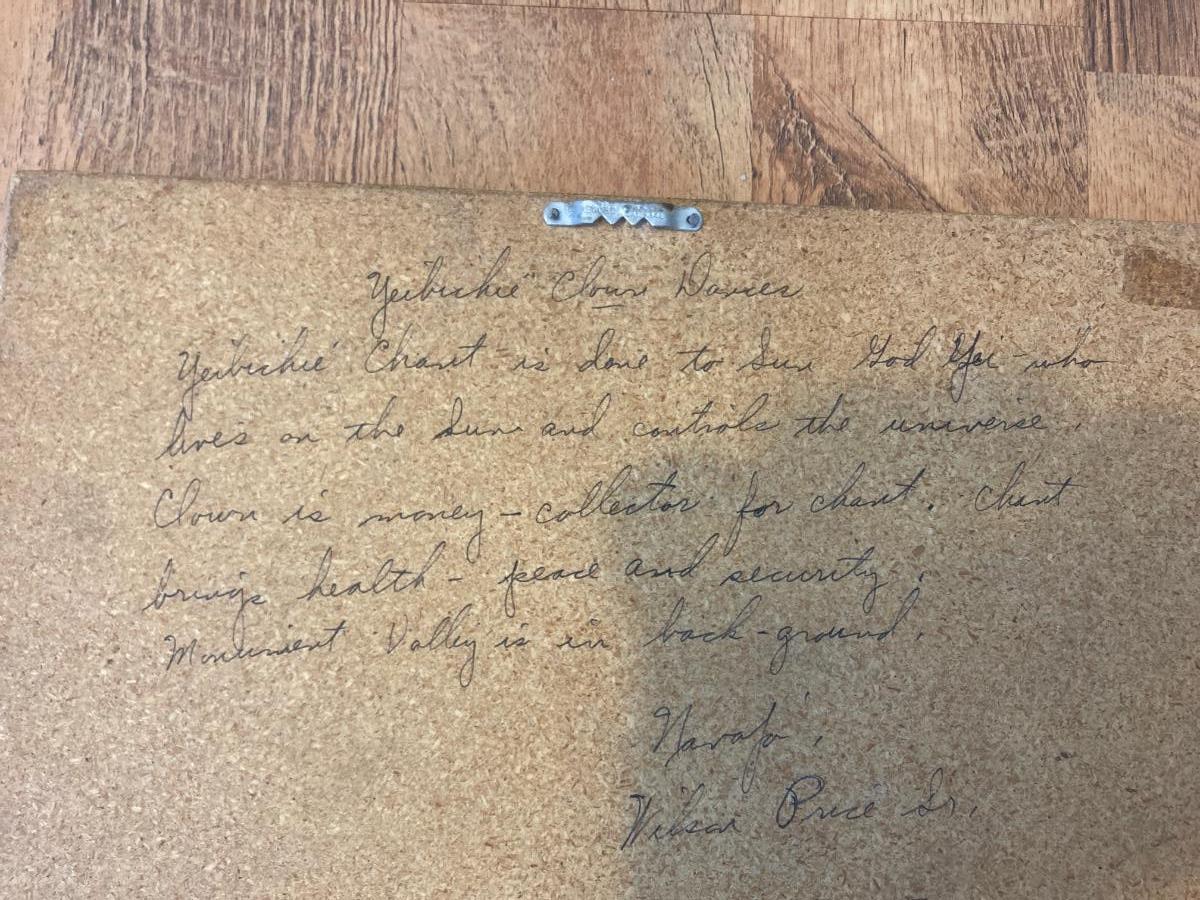 Yeibichie Clown Dances
Yeibichie Chant is done to Sun God Yei - who
lives on the Sun and controls the universe.
Clown is money - collector for chant. Chant
brings health - peace and security.
Monument Valley is in back-ground.
Navajo,
Wilson Price Sr.